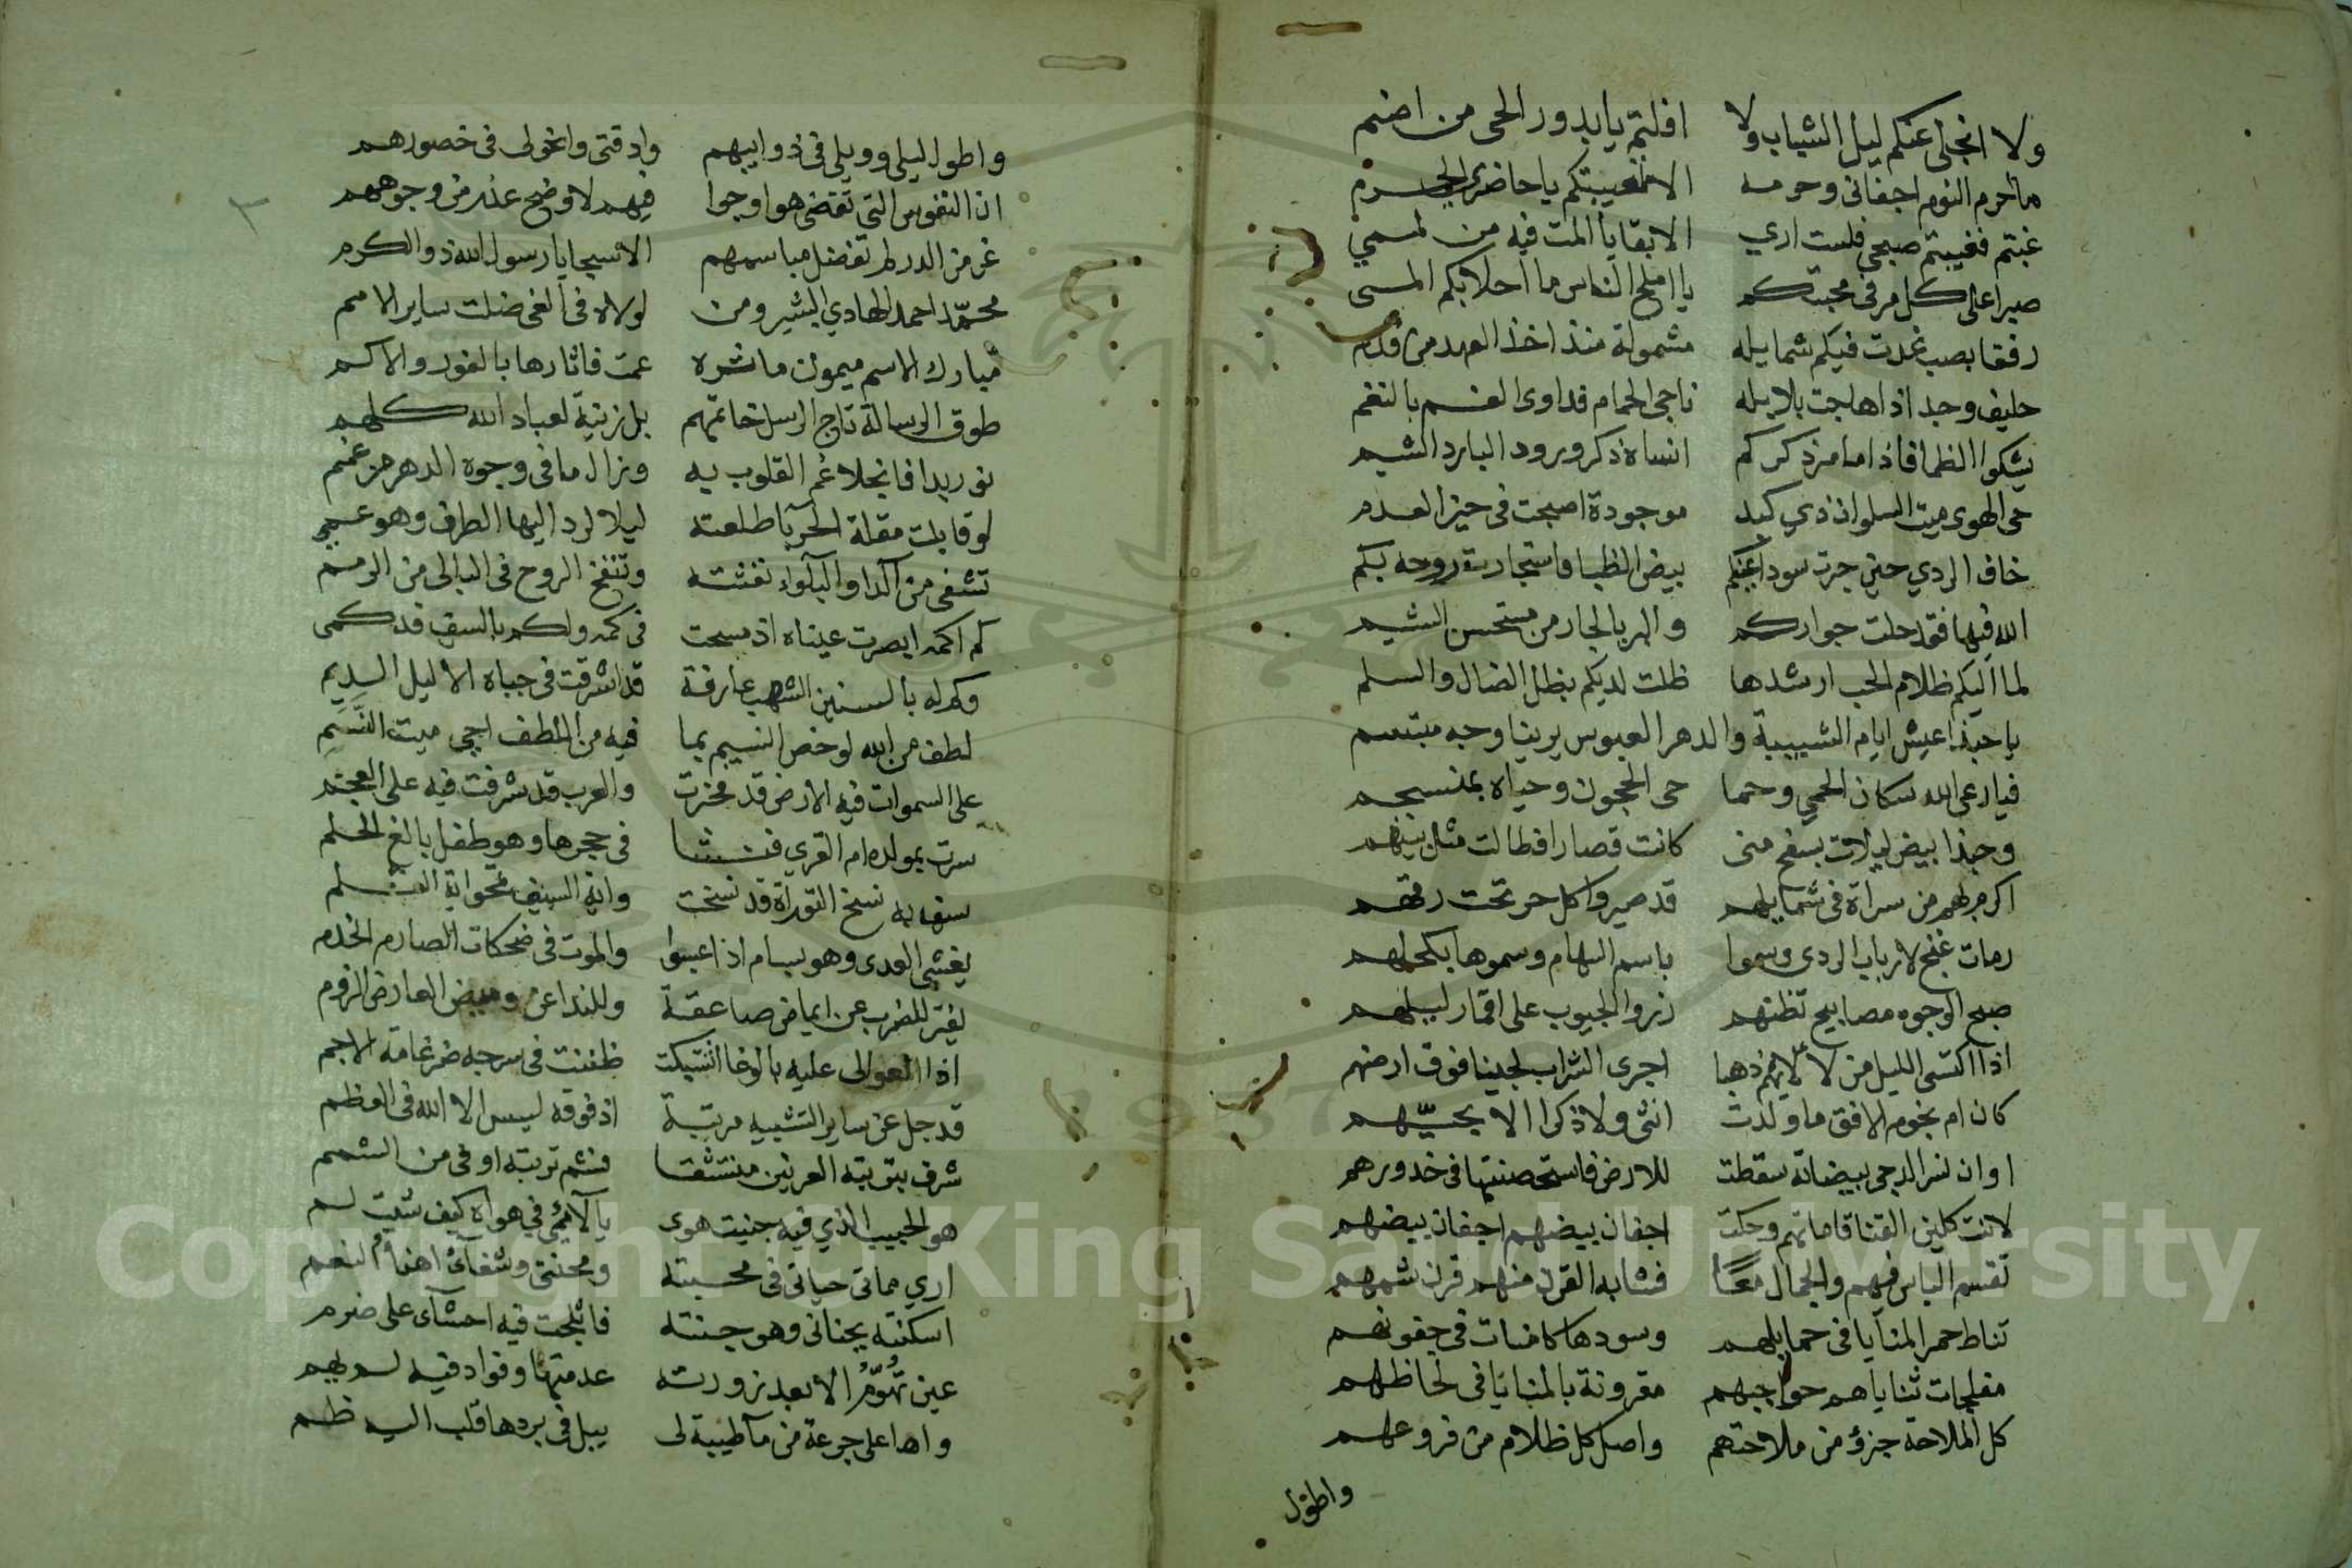 ولا انجلى عنكم ليل الشباب ولا افلتم يا بدور الحى من اضم
ما احرم النوم اجفانى وحرمه الا تغيبكم يا حاضرى الحرم
غبتم فغيبتم صبحى فلست ارى الا بقايا المت فيه من لممي
صبرا على كل مر فى محبتكم يا املح الناس ما احلا بكم المى
رفقا بصب غدت فيكم شمايله مشمولة منذ اخذ العهد من قدم
حليف وجد اذا هاجت بلابله ناجى الحمام فداوى الغم بالنغم
يشكوا الظما فاذا ما مر ذكركم انساه ذكر ورود البارد الشبم
حى الهوى ميت السلوان ذي كبد موجودة اصبحت فى حيز العدم
خاف الردي حتى جرت سود اعينكم بيض الظبا فاستجارت روحه بكم
الله فيها فقد حلت جواركم والبر بالجار من مستحسن الشيم
لما اليكم ظلام الحب ارشدها ظلت لديكم بظل الضال والسلم
يا حبذا عيش ايام الشبيبة والدهر العبوس يرينا وجه مبتسم
فيا رعى الله سكان الحمي وحما حى الحجون وحياه بمنسجم
وحبذا بيض ليلات بسفح منى كانت قصارا فطالت مثل بينهم
اكرم بهم من سراة فى شمايلهم قد صيروا كل حر تحت رقهم
رمات غنج لارباب الردى وسموا باسم السهام وسموها بكحلهم
صبح الوجوه مصابيح تظنهم زروا الجيوب على اقمار ليلهم
اذا اكتسى الليل من لالايهم ذهبا اجرى التراب لجينا فوق ارضهم
كان ام نجوم الافق ما ولدت انثى ولا ذكرا الا بحيّهم
او ان نسر الدجى بيضاته سقطت للارض فاستحضنتها فى خدورهم
لانت كلين القنا قاماتهم وحكت اجفان بيضهم اجفان بيضهم
تقسم الباس فيهم والجمال معًا فشابه القرن منهم قرن شمسهم
تناط حمر المنايا فى حمايلهم وسودها كامنات فى جفونهم
مفلجات ثناياهم حواجبهم مقرونة بالمنايا فى لحاظهم
كل الملاحة جزؤ من ملاحتهم واصل كل ظلام من فروعهم
واطول
واطول ليلى وويلى فى ذوايبهم وادقتى وانحولى فى خصورهم
ان النفوس التى تقضى هوا وجوا فيهم لاوضح عذر من وجوههم
غر من الدر لم تفضل مباسمهم الا سجايا رسول الله ذو الكرم
محمّد احمد الهادي البشير ومن لولاه فى الغى ضلت ساير الامم
مبارك الاسم ميمون ماثره عمت فاثارها بالغور والاكم
طوق الرسالة تاج الرسل خاتمهم بل زينة لعباد الله كلهم
نور بدا فانجلا غم القلوب به وزال ما فى وجوه الدهر من غمم
لو قابلت مقلة الحربا طلعته ليلا لرد اليها الطرف وهو عمي
تشفى من الدا والبلواء نفثته وتنفخ الروح فى البالى من الرمم
كم اكمه ابصرت عيناه اذ مسحت فى كمه ولكم بالسيف قد كمى
وكم له بالسنين الشهب عارفة قد اشرقت فى جباه الاليل الديم
لطف من الله لو خص النسيم بما فيه من اللطف احيى ميت النَّسَمِ
على السموات فيه الارض قد فخرت والعرب قد شرفت فيه على العجم
سرت بمولده ام القري فنشا فى حجرها وهو طفل بالغ الحلم
سيف به نسخ التوراة قد نسخت واية السيف تمحو اية القلم
يغشى العدى وهو بسام اذا عبسوا والموت فى ضحكات الصارم الخذم
يفتر للضرب عن ايماض صاعقة وللندا عن وميض العارض الرزم
اذا العوالى عليه بالوغا اشتبكت ظننت فى سرجه ضرغامة الاجم
قد جل عن ساير التشبيه مرتبة اذ فوقه ليس الا الله فى العظم
شرف بتربته العرنين منتشقا فشم تربته اوفى من الشمم
هو الحبيب الذي فيه جنيت هوى يا لائمي في هواه كيف شيت لم
اري مماتى حياتى فى محبته ومحنتى وشفائى اهنا النعم
اسكنته بجنانى وهو جنته فاثلجت فيه احشآى على ضرم
عين تهوّمُ الا بعد زورته عدمتها وفواد فيه لم يهم
واها على جرعة من مآ طيبة لى يبل فى بردها قلب اليه ظم